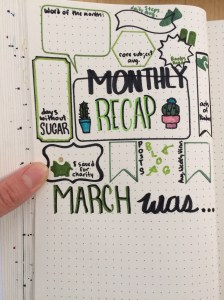 Word of the month:
daily steps
avg.
core subject
avg.
Books
MONTHLY
RECAP
days
without
SUGAR
# of
Books
$ saved for
charity
BLOG
POSTS
Avg. Weekly
MARCH was...